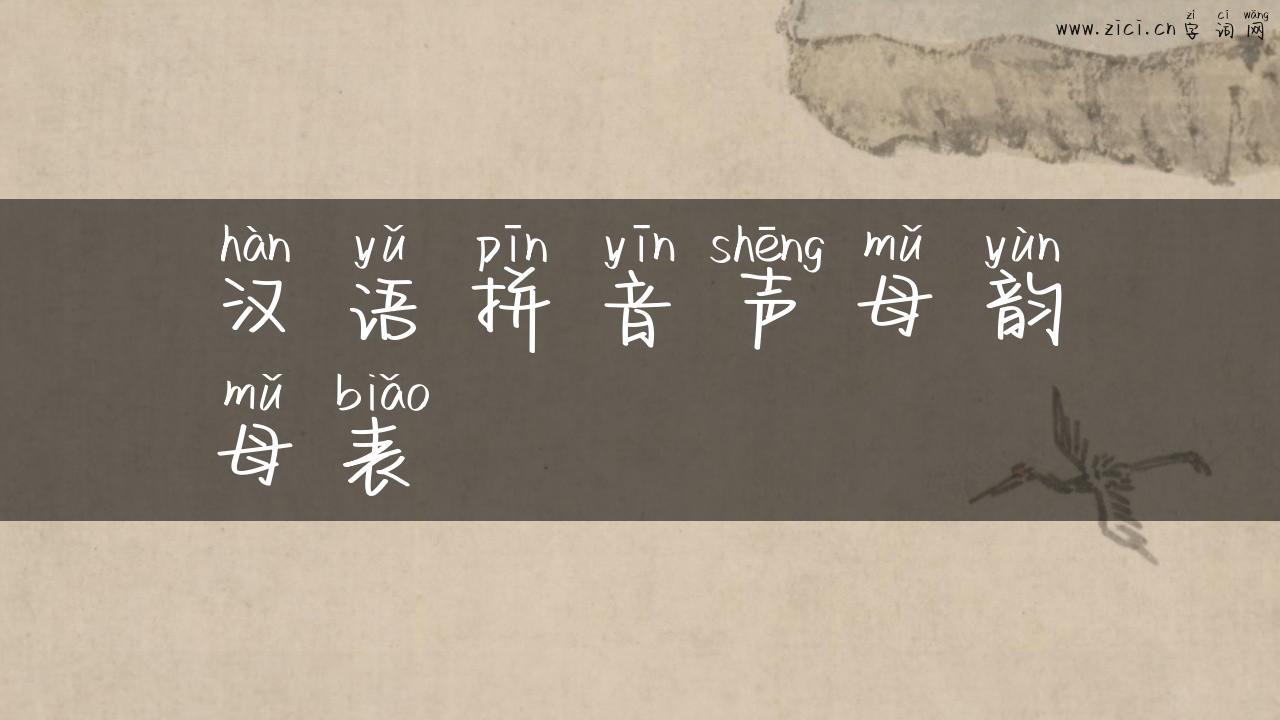 zì cí wǎng
www.zici.cn 字 词 网
hàn yǔ pīn yīn shēng mǔ yùn
汉 语 拼 音 声 母 韵
mǔ biǎo
母 表